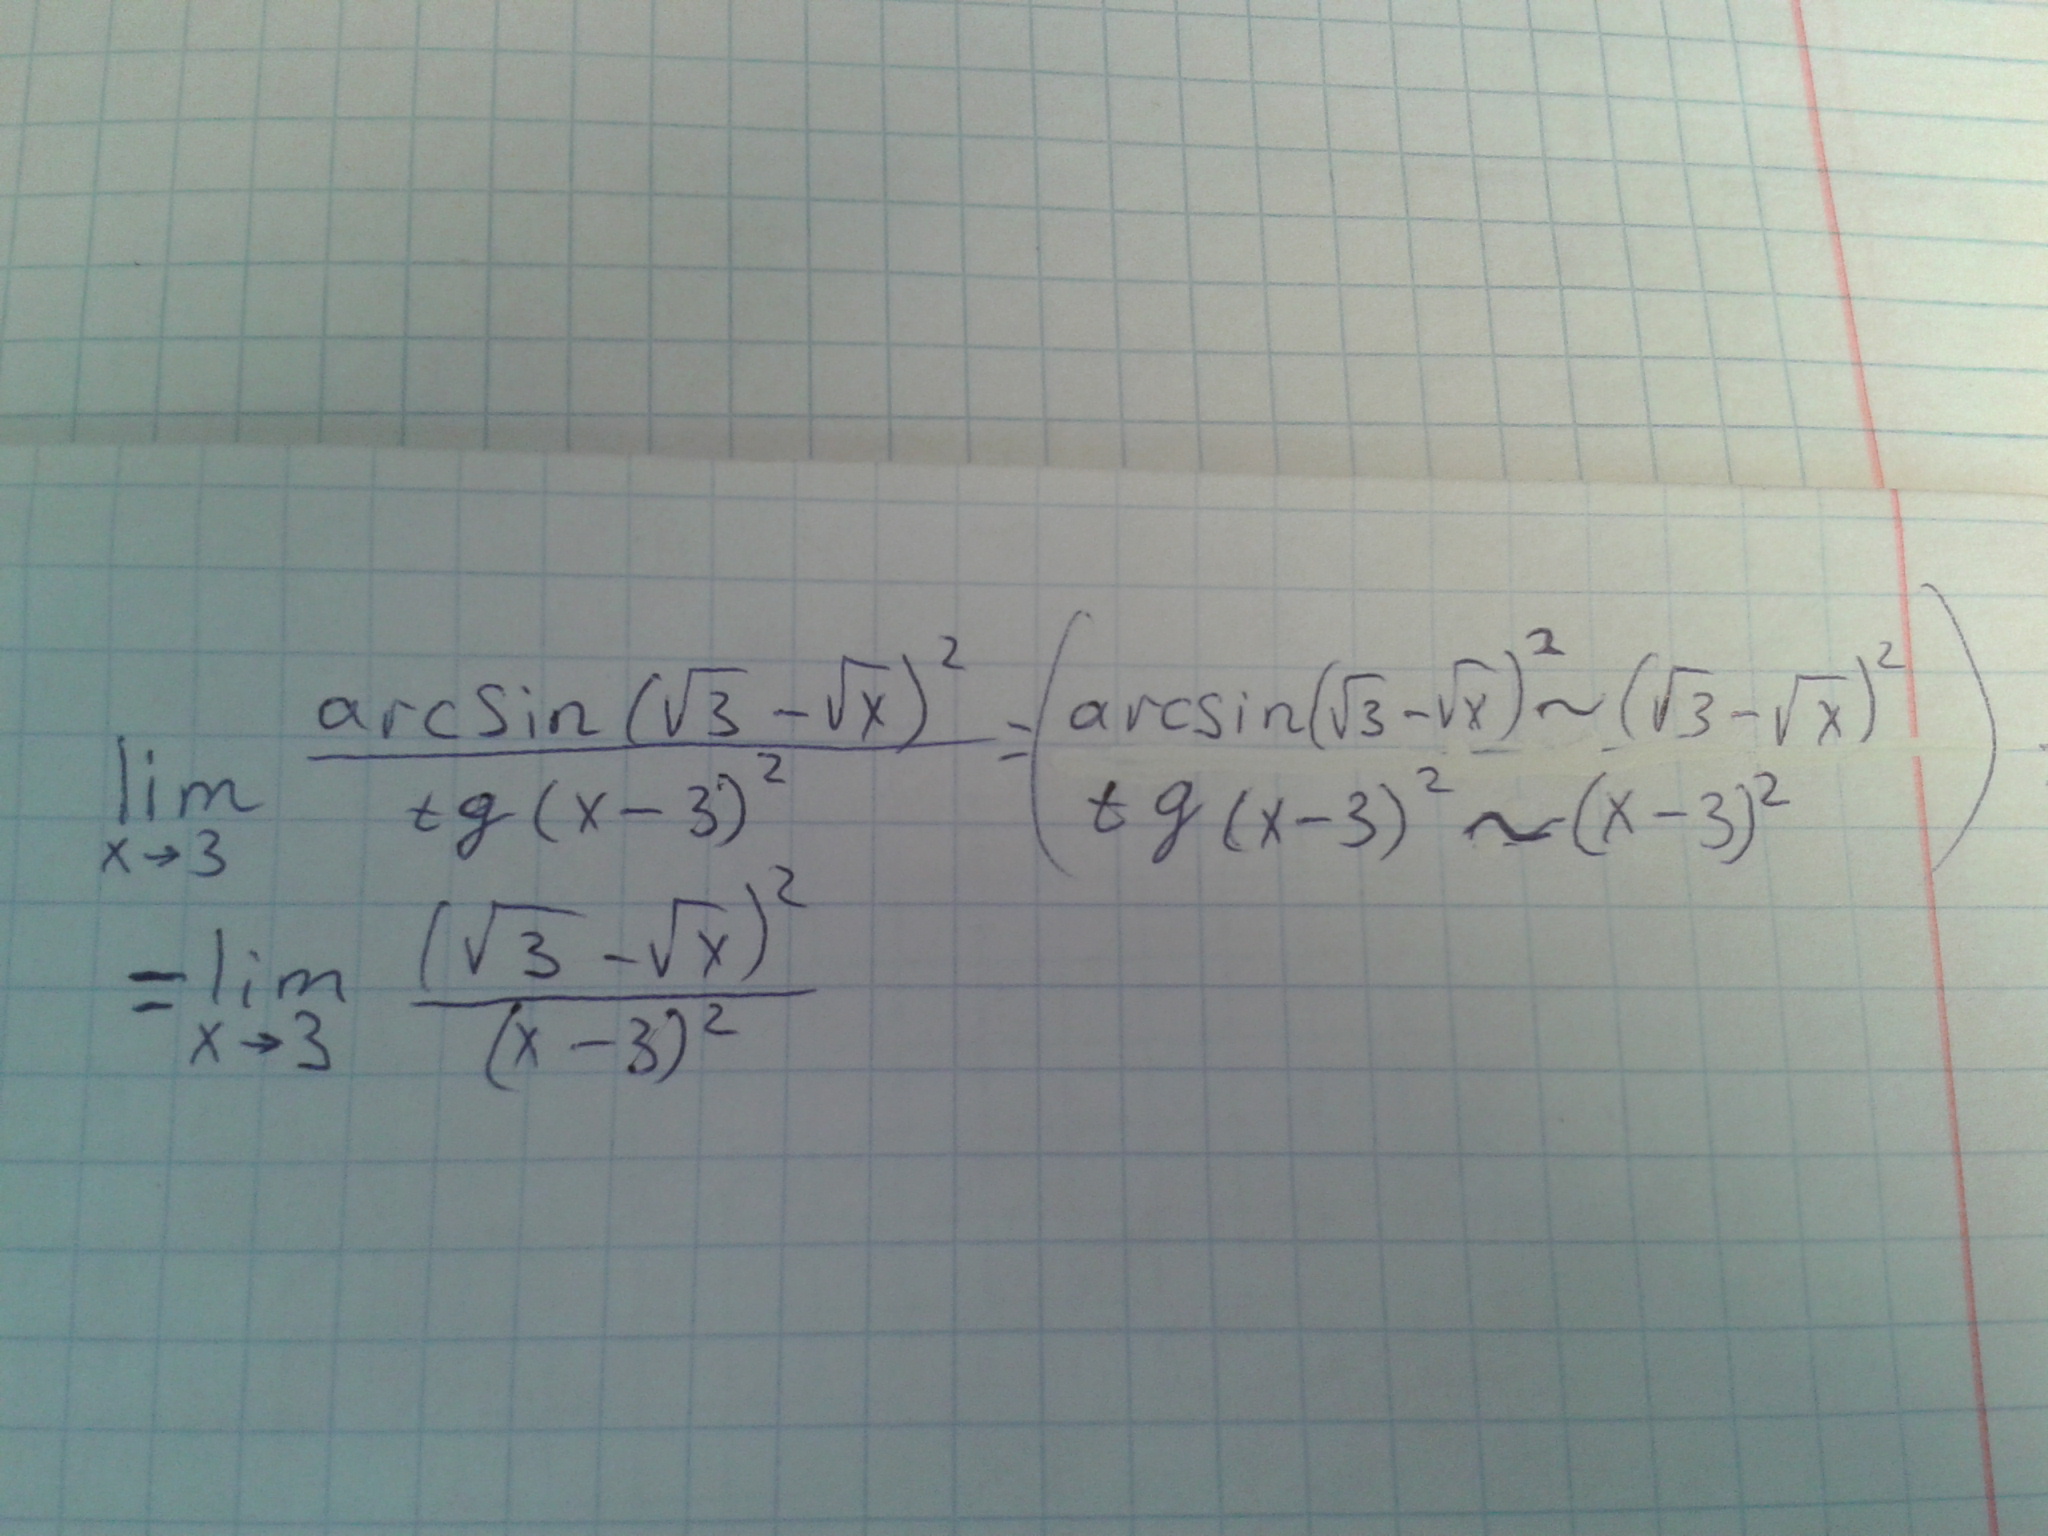 lim x→3 arcsin(√3-√x)² / tg(x-3)² = (arcsin(√3-√x)² ~ (√3-√x)² tg(x-3)² ~ (x-3)²) =
= lim x→3 (√3-√x)² / (x-3)²